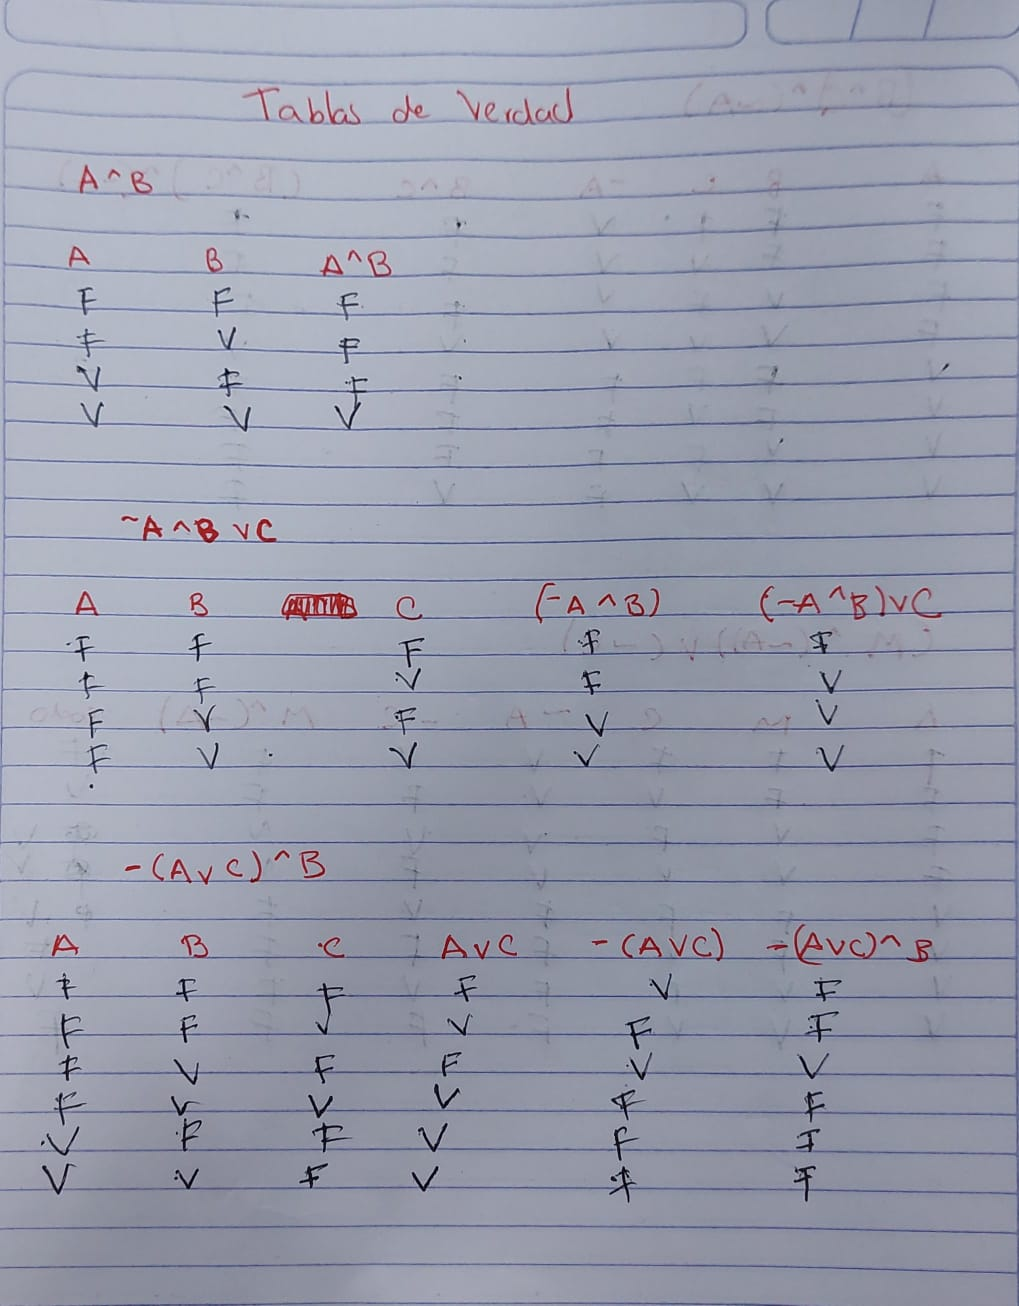 Tablas de Verdad
A ^ B
A B A^B
F F F
F V F
V F F
V V V
~A ^ B v C
A B C (-A ^ B) (-A ^ B) v C
F F F F F
F F V F V
F V F V V
F V V V V
-(A v C) ^ B
A B C A v C -(A v C) -(A v C) ^ B
F F F F V F
F F V V F F
F V F F V V
F V V V F F
V F F V F F
V V F V F F